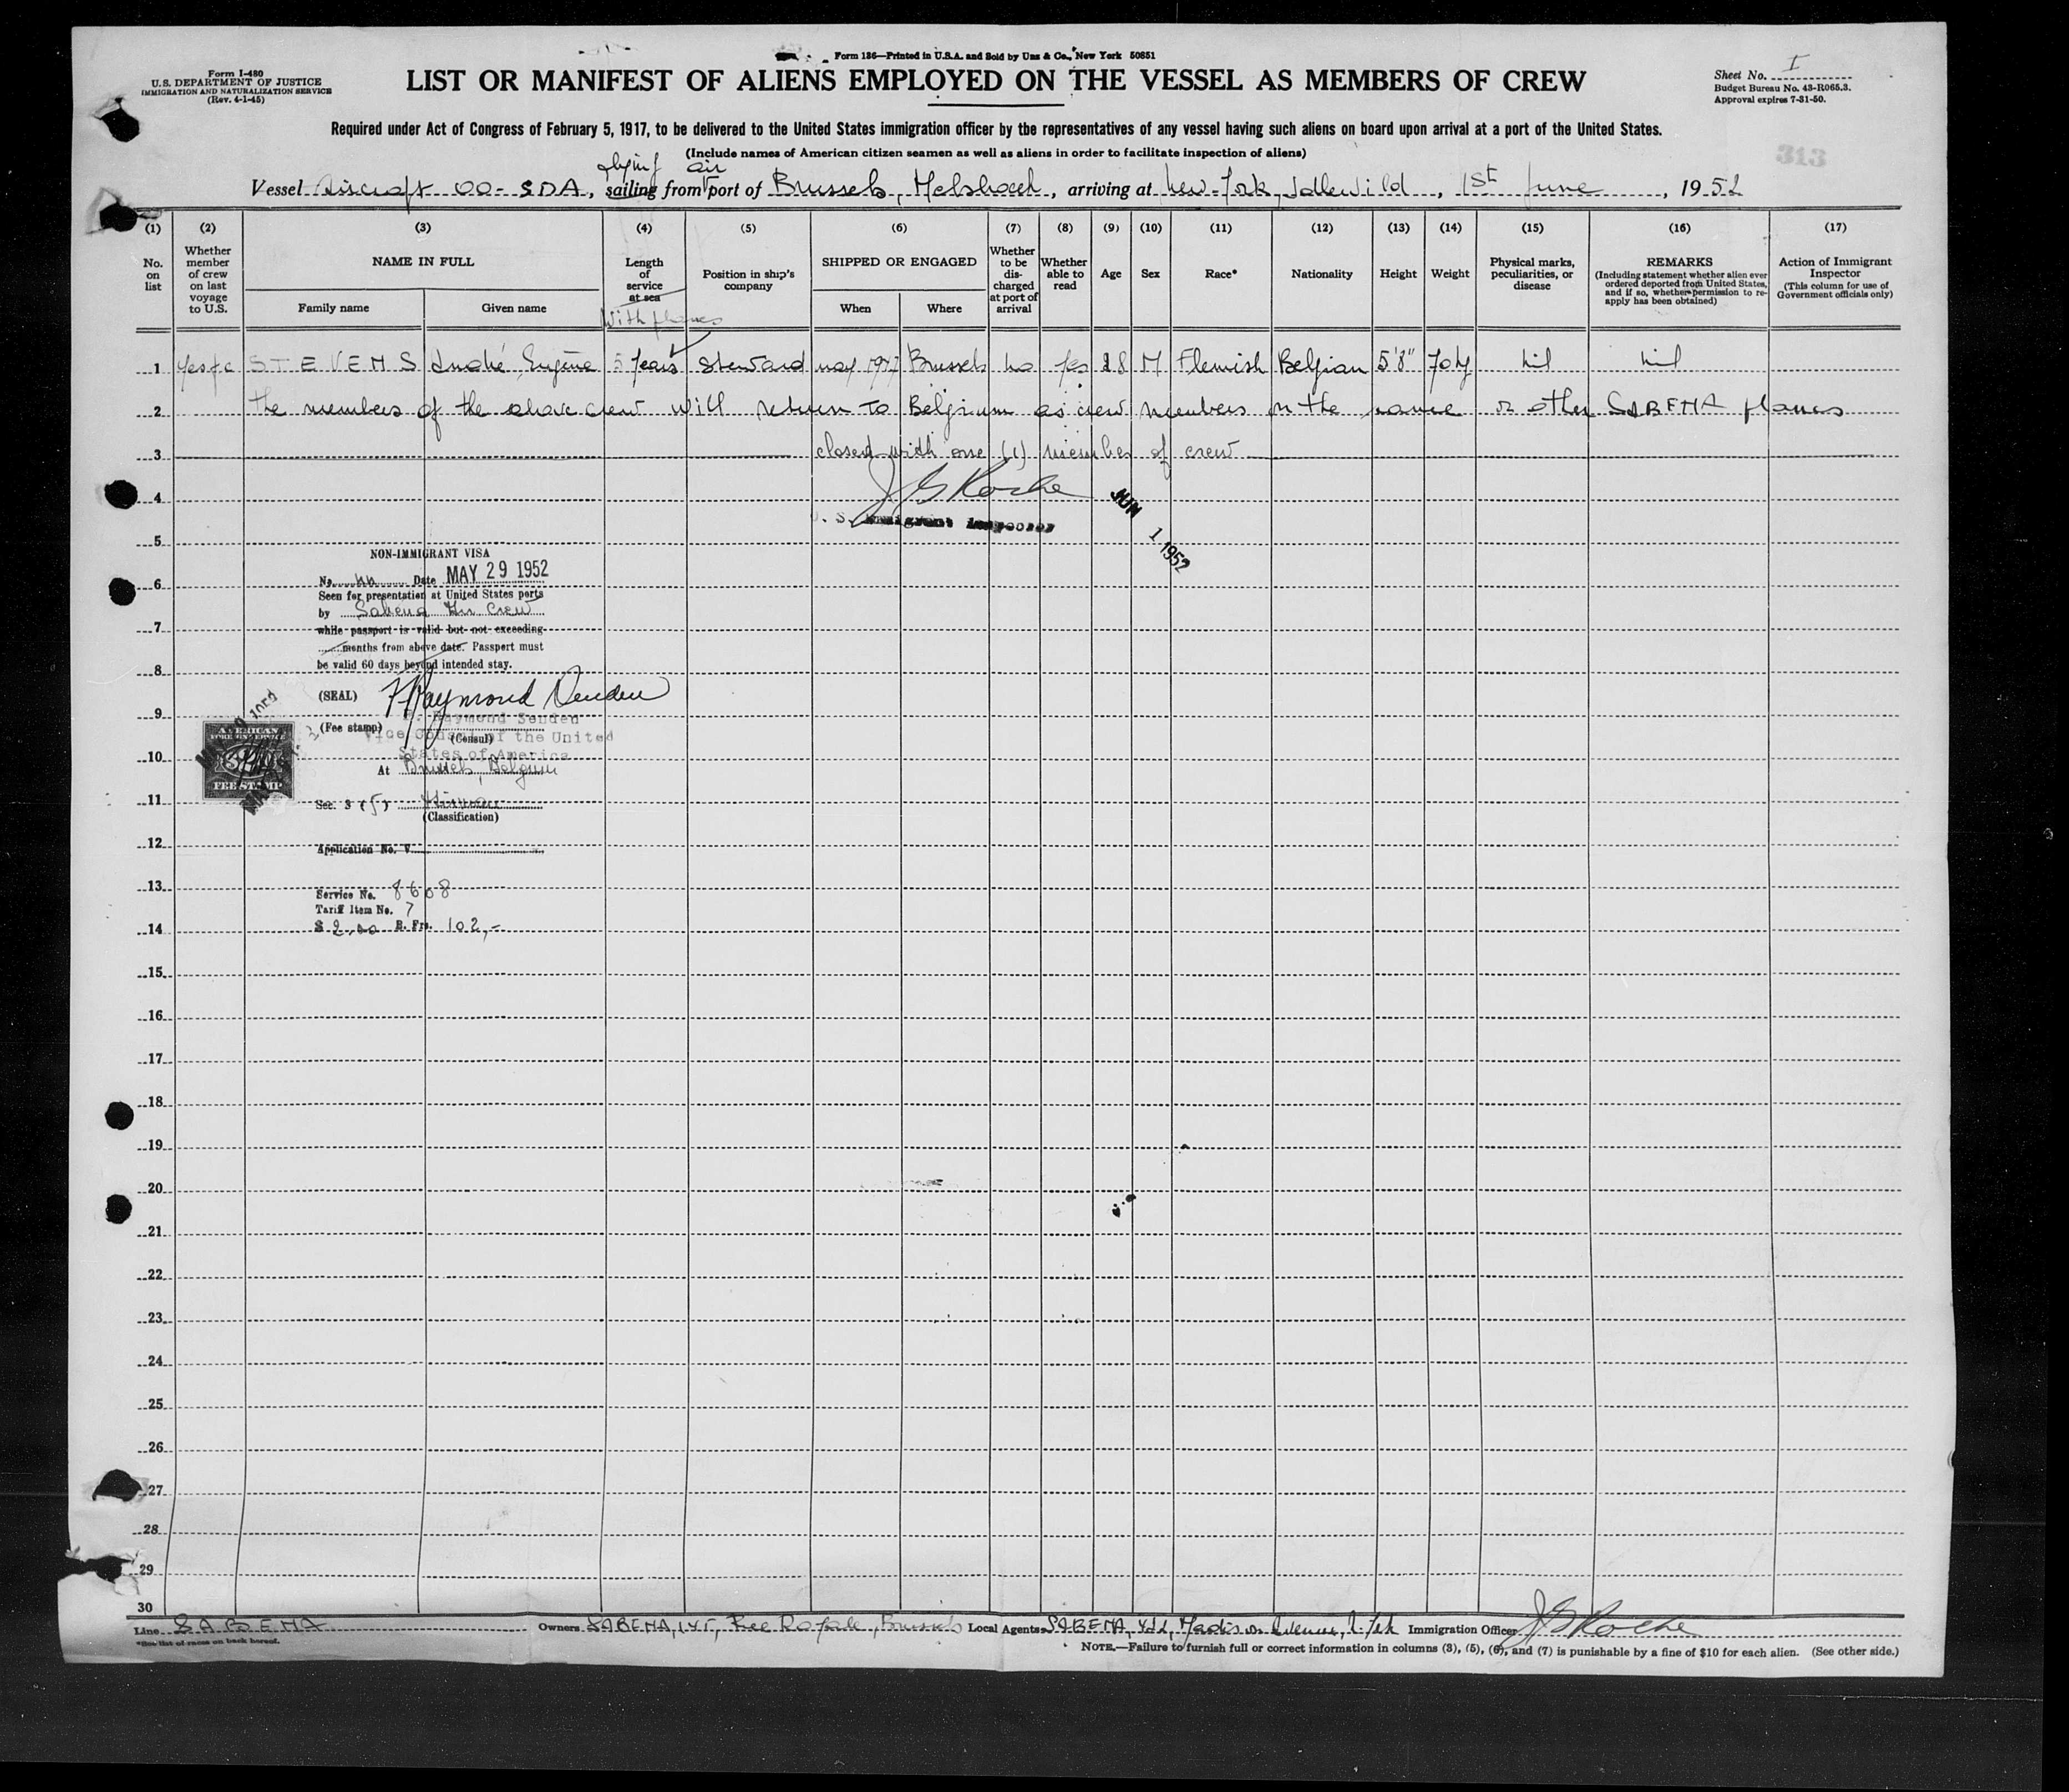 Form 136—Printed in U.S.A. and Sold by Unz & Co., New York 50851
Form I-480
U.S. DEPARTMENT OF JUSTICE
IMMIGRATION AND NATURALIZATION SERVICE
(Rev. 4-1-45)
LIST OR MANIFEST OF ALIENS EMPLOYED ON THE VESSEL AS MEMBERS OF CREW
Sheet No. I
Budget Bureau No. 43-R065.3.
Approval expires 7-31-50.
Required under Act of Congress of February 5, 1917, to be delivered to the United States immigration officer by the representatives of any vessel having such aliens on board upon arrival at a port of the United States.
(Include names of American citizen seamen as well as aliens in order to facilitate inspection of aliens)
313
flying air
Vessel Aircraft OO-SDA, sailing from port of Brussels, Melsbroek, arriving at New-York, Idlewild, 1st June, 1952
(1) (2) (3) (4) (5) (6) (7) (8) (9) (10) (11) (12) (13) (14) (15) (16) (17)
No. on list
Whether member of crew on last voyage to U.S.
NAME IN FULL
Family name
Given name
Length of service at sea
with planes
Position in ship's company
SHIPPED OR ENGAGED
When
Where
Whether to be discharged at port of arrival
Whether able to read
Age
Sex
Race*
Nationality
Height
Weight
Physical marks, peculiarities, or disease
REMARKS
(Including statement whether alien ever ordered deported from United States, and if so, whether permission to re-apply has been obtained)
Action of Immigrant Inspector
(This column for use of Government officials only)
1 yes STEVENS André, Eugène 5 years steward may 1947 Brussels no yes 28 M Flemish Belgian 5'8" 70 kg nil nil
2 the members of the above crew will return to Belgium as crew members on the same or other SABENA planes
3 closed with one (1) member of crew
4 J G Roche
U. S. Immigrant Inspector
JUN 1 1952
5
NON-IMMIGRANT VISA
No. Date MAY 29 1952
6
Seen for presentation at United States ports
by Sabena Air Crew
7
while passport is valid but not exceeding
months from above date. Passport must
be valid 60 days beyond intended stay.
8
(SEAL) F Raymond Senden
9
F. Raymond Senden
(Fee stamp)
Vice Consul of the United
(Consul)
States of America
10
AMERICAN
FOREIGN SERVICE
FEE STAMP
At Brussels, Belgium
11
Sec. 3 (5)
(Classification)
12
Application No. V
13
Service No. 8608
Tariff Item No. 7
14
$ 2,00 B. Frs. 102,-
15
16
17
18
19
20
21
22
23
24
25
26
27
28
29
30
Line SABENA Owners SABENA, 145, Rue Royale, Brussels Local Agents SABENA, Madison Avenue, N. York Immigration Officer J G Roche
*See list of races on back hereof.
NOTE.—Failure to furnish full or correct information in columns (3), (5), (6), and (7) is punishable by a fine of $10 for each alien. (See other side.)